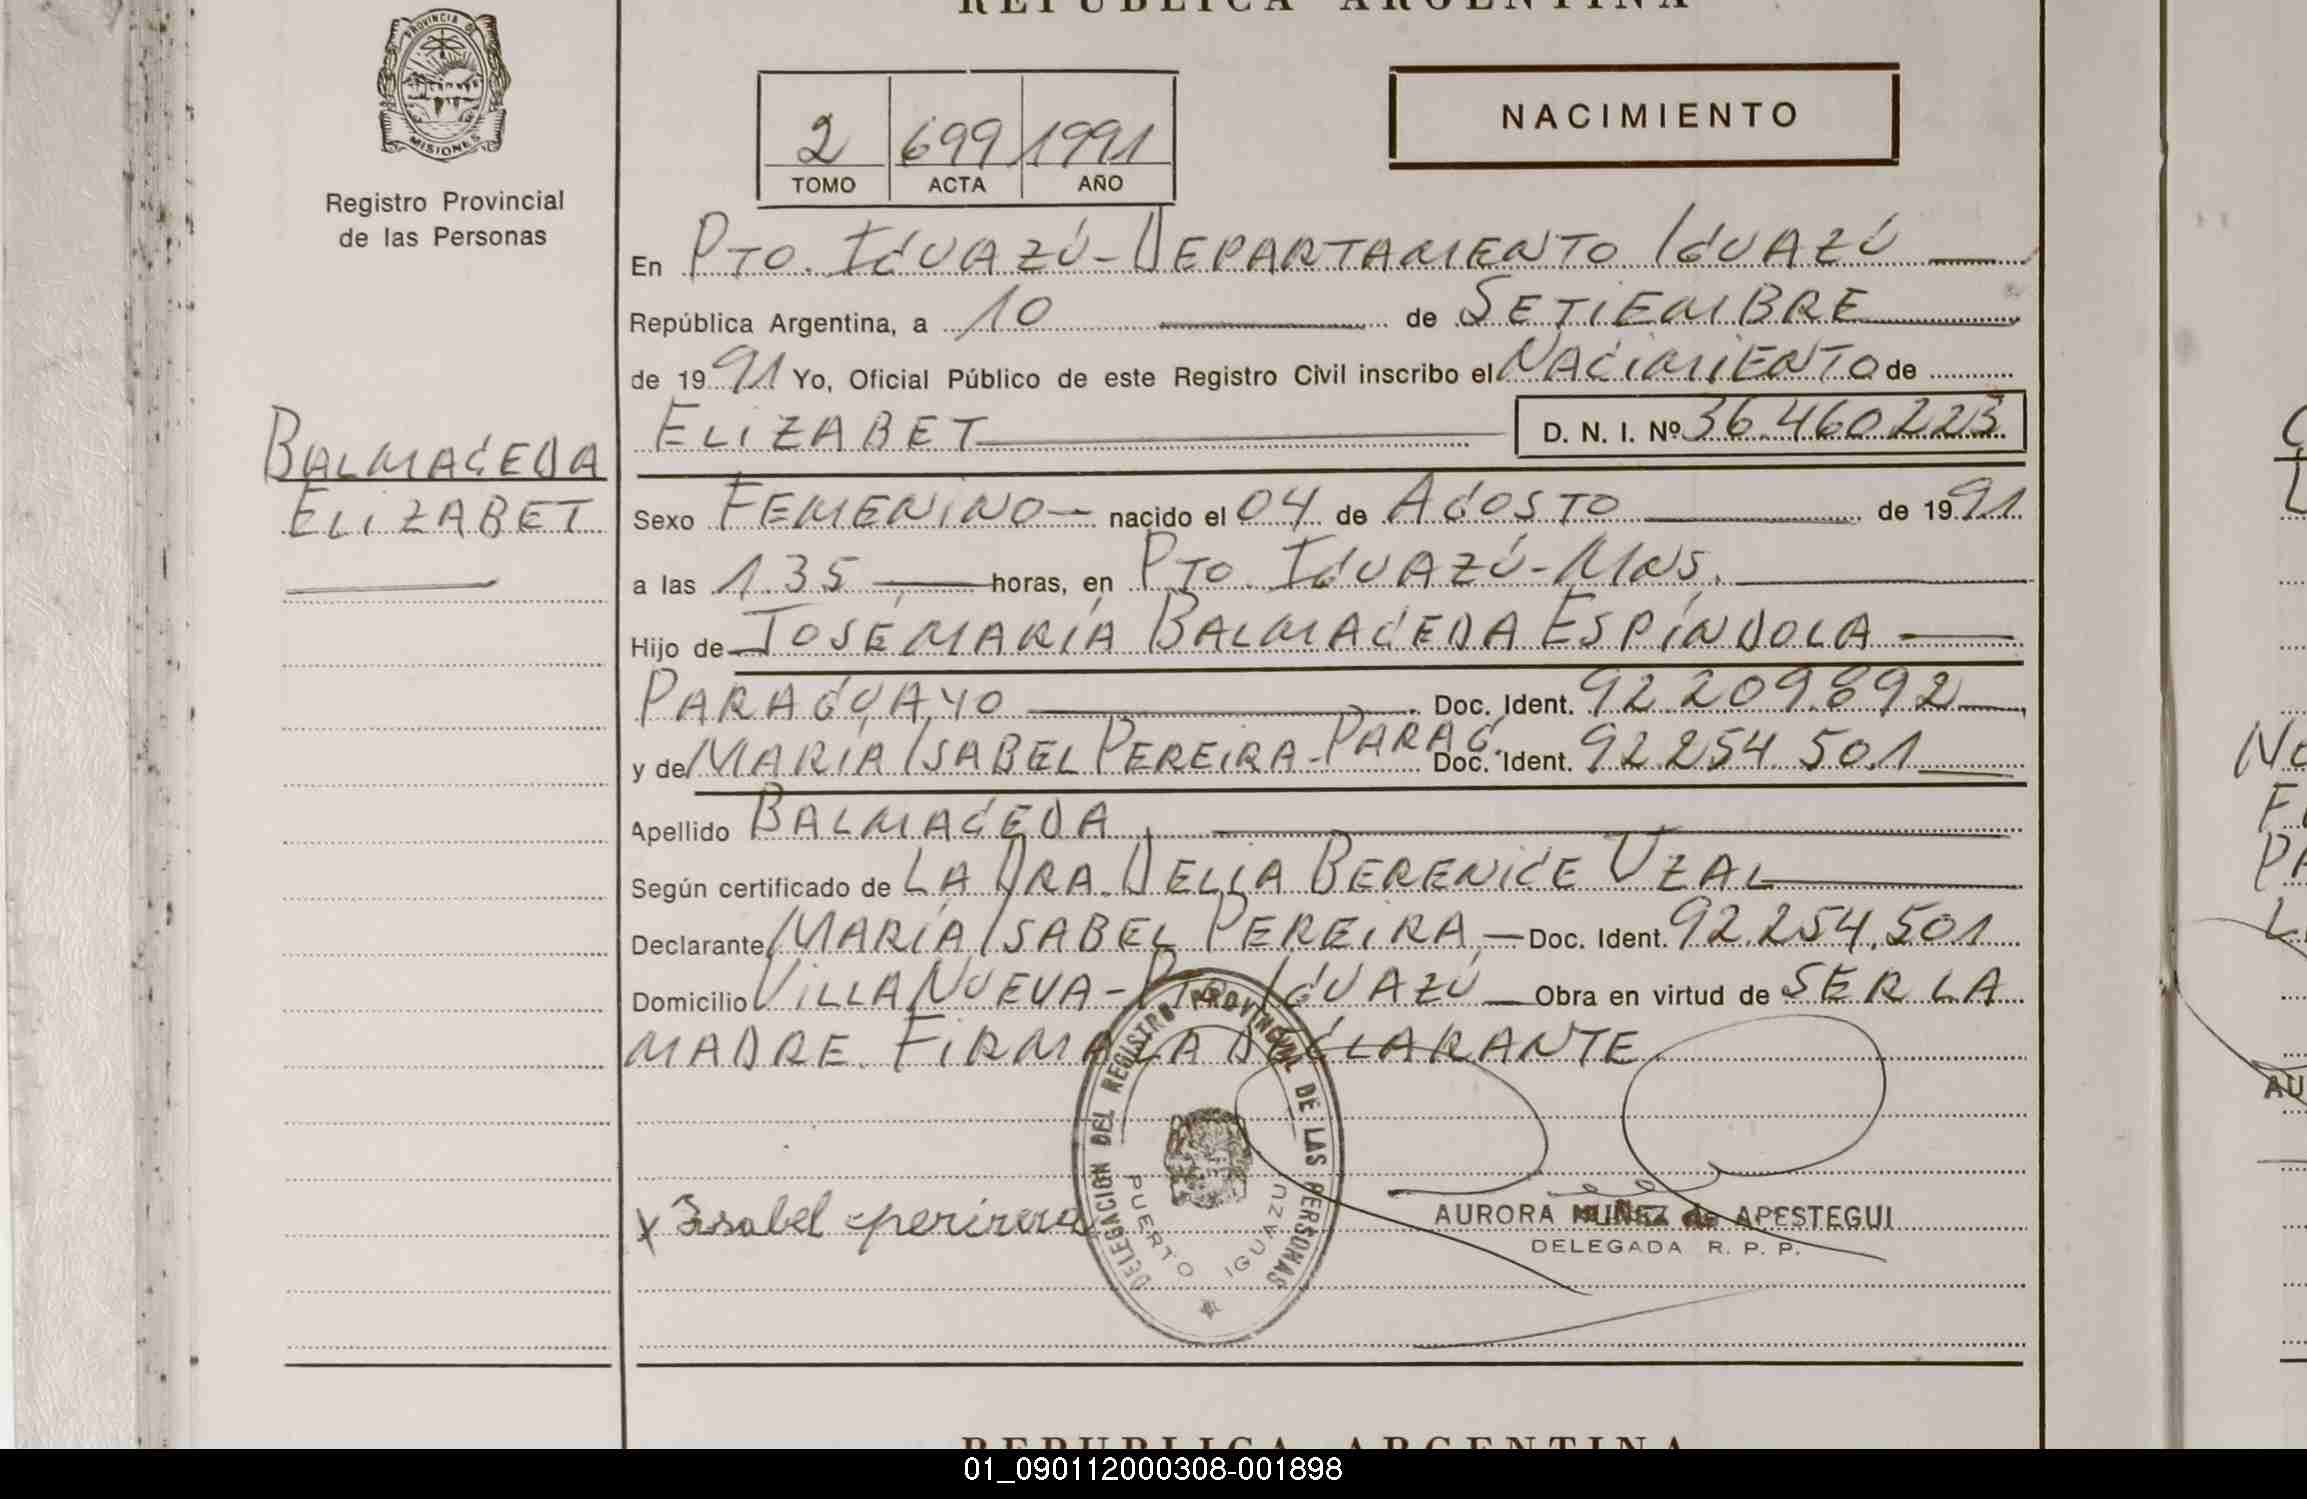 REPUBLICA ARGENTINA
PROVINCIA D
MISIONES
Registro Provincial
de las Personas
NACIMIENTO
2 699 1991
TOMO ACTA AÑO
En PTO. IGUAZÚ - DEPARTAMENTO IGUAZÚ
República Argentina, a 10 de SETIEMBRE
de 1991 Yo, Oficial Público de este Registro Civil inscribo el NACIMIENTO de
ELIZABET D. N. I. Nº 36.460.223
BALMACEDA
ELIZABET
Sexo FEMENINO nacido el 04 de AGOSTO de 1991
a las 1.35 horas, en PTO. IGUAZÚ - MNS.
Hijo de JOSÉ MARÍA BALMACEDA ESPÍNDOLA
PARAGUAYO Doc. Ident. 92.209.892
y de MARÍA ISABEL PEREIRA - PARAG. Doc. Ident. 92.254.501
Apellido BALMACEDA
Según certificado de LA DRA. DELIA BERENICE UZAL
Declarante MARÍA ISABEL PEREIRA Doc. Ident. 92.254.501
Domicilio VILLA NUEVA - PTO. IGUAZÚ Obra en virtud de SER LA
MADRE. FIRMA LA DECLARANTE
DELEGACION DEL REGISTRO PROVINCIAL DE LAS PERSONAS
PUERTO IGUAZU
x Isabel perirera
AURORA MUÑEZ de APESTEGUI
DELEGADA R. P. P.
REPUBLICA ARGENTINA
01_090112000308-001898